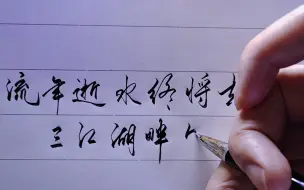 流年逝水终将去
三江湖畔